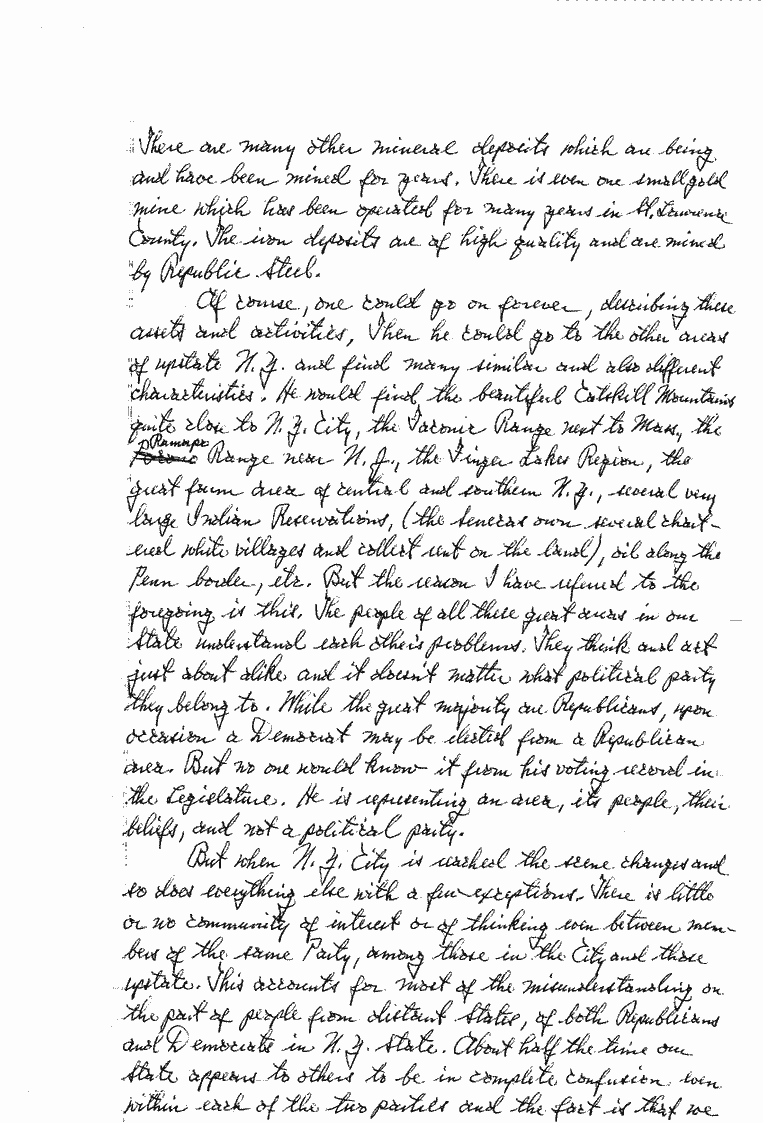 There are many other mineral deposits which are being
and have been mined for years. There is even one small gold
mine which has been operated for many years in St. Lawrence
County. The iron deposits are of high quality and are mined
by Republic Steel.
Of course, one could go on forever, describing these
assets and activities, Then he could go to the other areas
of upstate N.Y. and find many similar and also different
characteristics. He would find the beautiful Catskill Mountains
quite close to N.Y. City, the Taconic Range next to Mass, the
Ramapo
Range near N.J., the Finger Lakes Region, the
great farm area of central and southern N.Y., several very
large Indian Reservations, (the Senecas own several chart-
ered white villages and collect rent on the land), oil along the
Penn border, etc. But the reason I have referred to the
foregoing is this. The people of all these great areas in our
State understand each other's problems. They think and act
just about alike and it doesn't matter what political party
they belong to. While the great majority are Republicans, upon
occasion a Democrat may be elected from a Republican
area. But no one would know it from his voting record in
the Legislature. He is representing an area, its people, their
beliefs, and not a political party.
But when N.Y. City is reached the scene changes and
so does everything else with a few exceptions. There is little
or no community of interest or of thinking even between mem-
bers of the same Party, among those in the City and those
upstate. This accounts for most of the misunderstanding on
the part of people from distant States, of both Republicans
and Democrats in N.Y. State. About half the time our
State appears to others to be in complete confusion even
within each of the two parties and the fact is that we